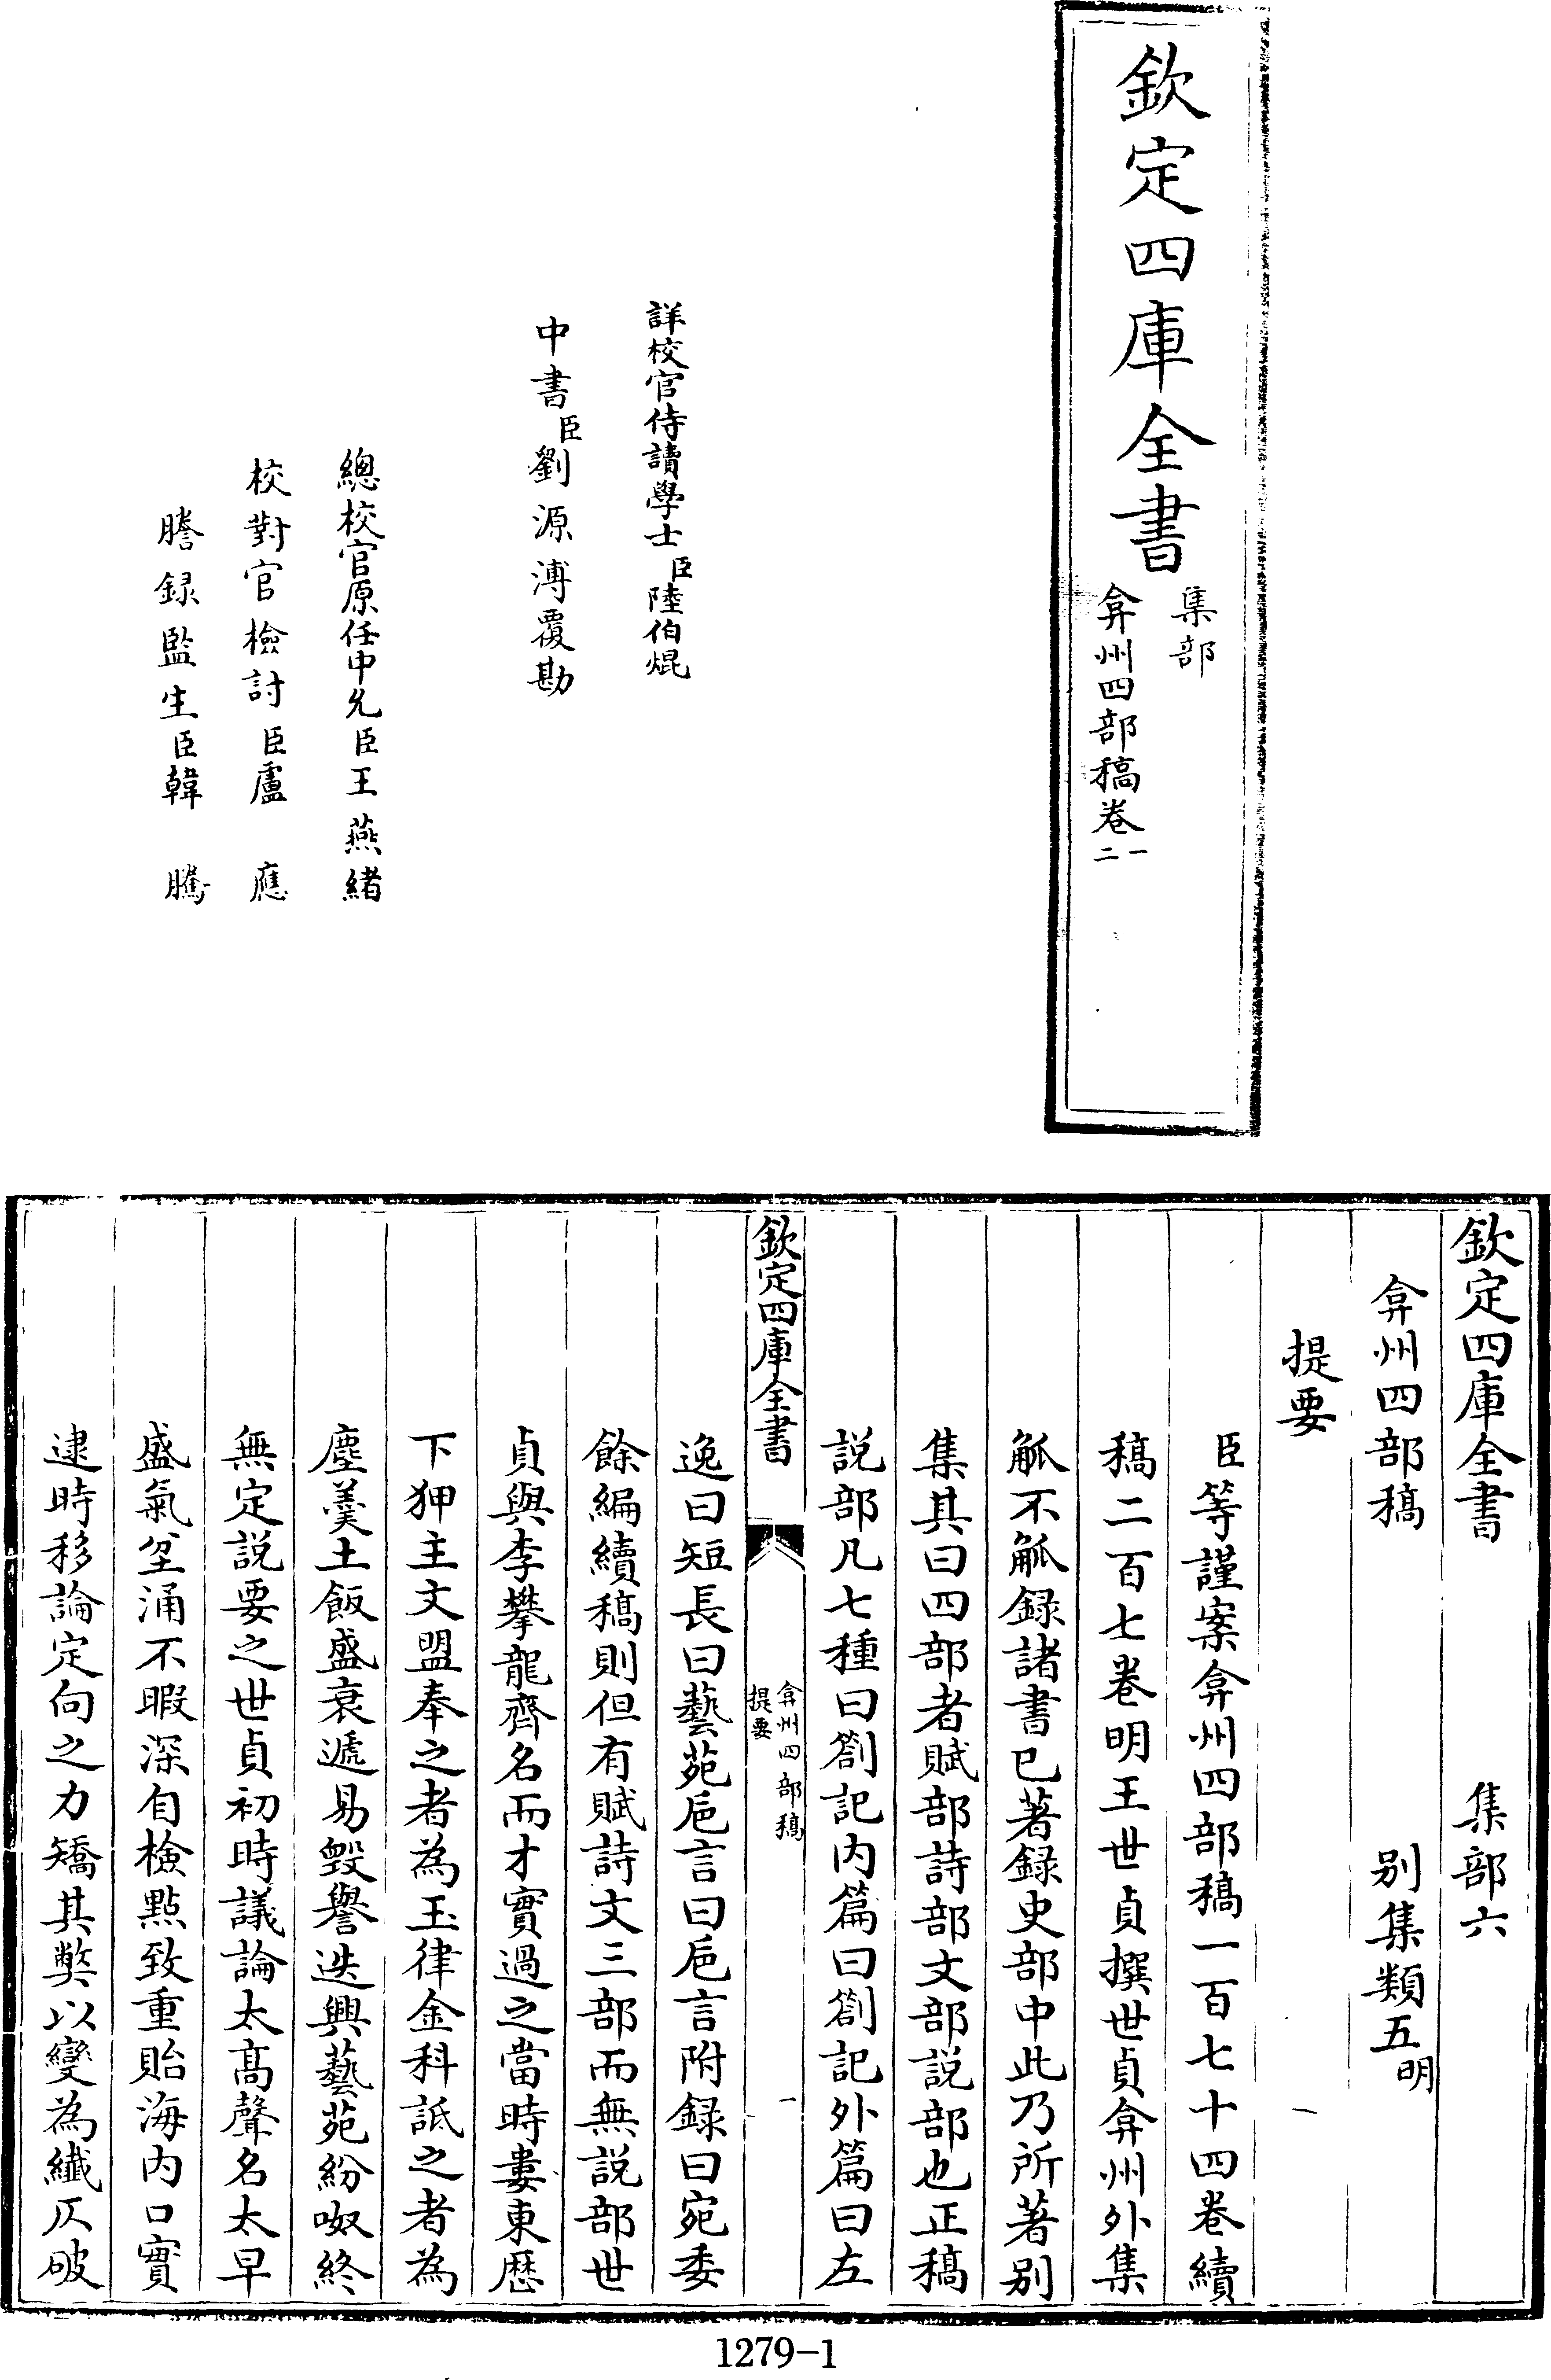 欽定四庫全書
集部
弇州四部稿卷一二
詳校官侍讀學士臣陸伯焜
中書臣劉源溥覆勘
總校官原任中允臣王燕緒
校對官檢討臣盧應
謄録監生臣韓騰
欽定四庫全書 集部六
弇州四部稿 别集類五明
提要
臣等謹案弇州四部稿一百七十四卷續
稿二百七卷明王世貞撰世貞弇州外集
觚不觚録諸書已著録史部中此乃所著别
集其曰四部者賦部詩部文部説部也正稿
説部凡七種曰劄記内篇曰劄記外篇曰左
欽定四庫全書
弇州四部稿
提要
一
逸曰短長曰藝苑巵言曰巵言附録曰宛委
餘編續稿則但有賦詩文三部而無説部世
貞與李攀龍齊名而才實過之當時婁東歴
下狎主文盟奉之者為玉律金科詆之者為
塵羮土飯盛衰遞易毀譽迭興藝苑紛呶終
無定説要之世貞初時議論太髙聲名太早
盛氣坌涌不暇深自檢㸃致重貽海内口實
逮時移論定向之力矯其弊以變為纎仄破
1279-1